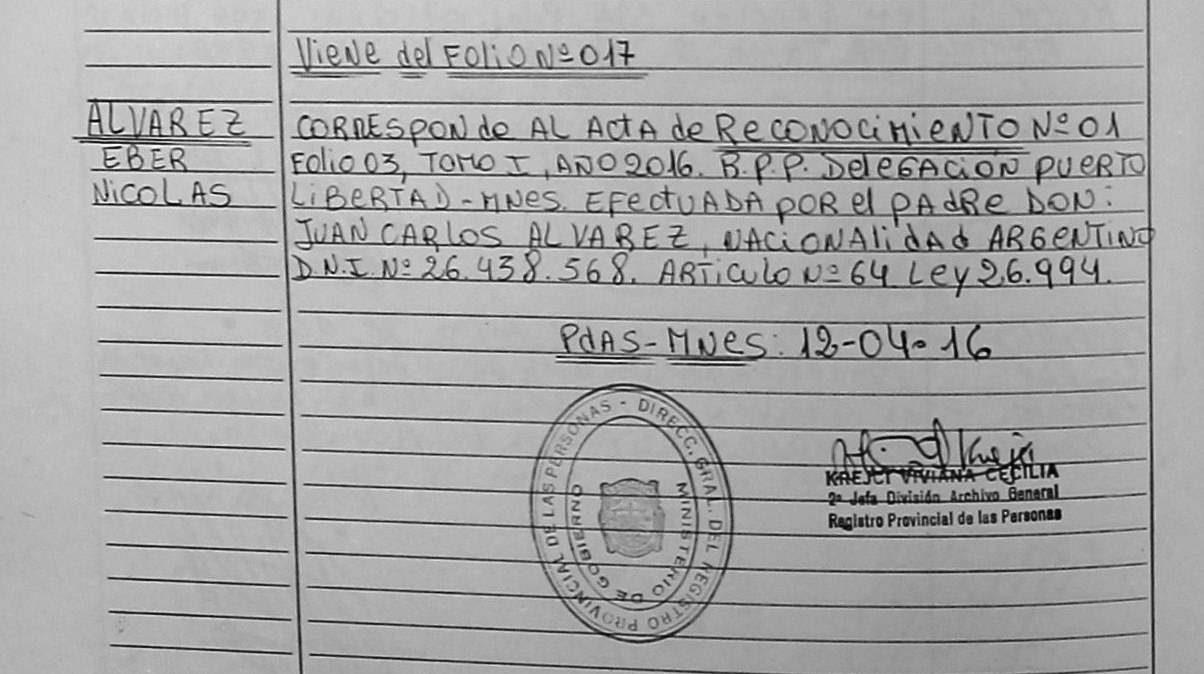 Viene del Folio Nº 017
ALVAREZ
EBER
NICOLAS
CORRESPONde AL ActA de RECONOCiMieNTO Nº 01
Folio 03, TOMO I, AÑO 2016. B.P.P. DeleGACiÓN PUERTO
LiBERTAD-MNES. EFectUADA POR el PAdRe DON:
JUAN CARLOS ALVAREZ, NACiONAlidAd ARGENTINO
D.N.I. Nº 26.438.568. ARTiculo Nº 64 Ley 26.994.
PdAS-MNeS: 12-04-16
DIRECC. GRAL. DEL REGISTRO PROVINCIAL DE LAS PERSONAS -
MINISTERIO DE GOBIERNO
KREJCI VIVIANA CECILIA
2ª Jefa División Archivo General
Registro Provincial de las Personas